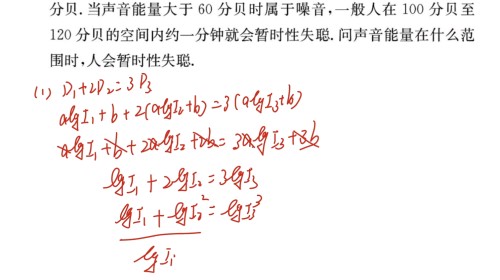 分贝. 当声音能量大于 60 分贝时属于噪音,一般人在 100 分贝至
120 分贝的空间内约一分钟就会暂时性失聪. 问声音能量在什么范
围时,人会暂时性失聪.
(1) D₁+2D₂=3D₃
algI₁+b+2(algI₂+b)=3(algI₃+b)
algI₁+b+2algI₂+2b=3algI₃+3b
lgI₁+2lgI₂=3lgI₃
lgI₁+lgI₂²=lgI₃³
lgI₁